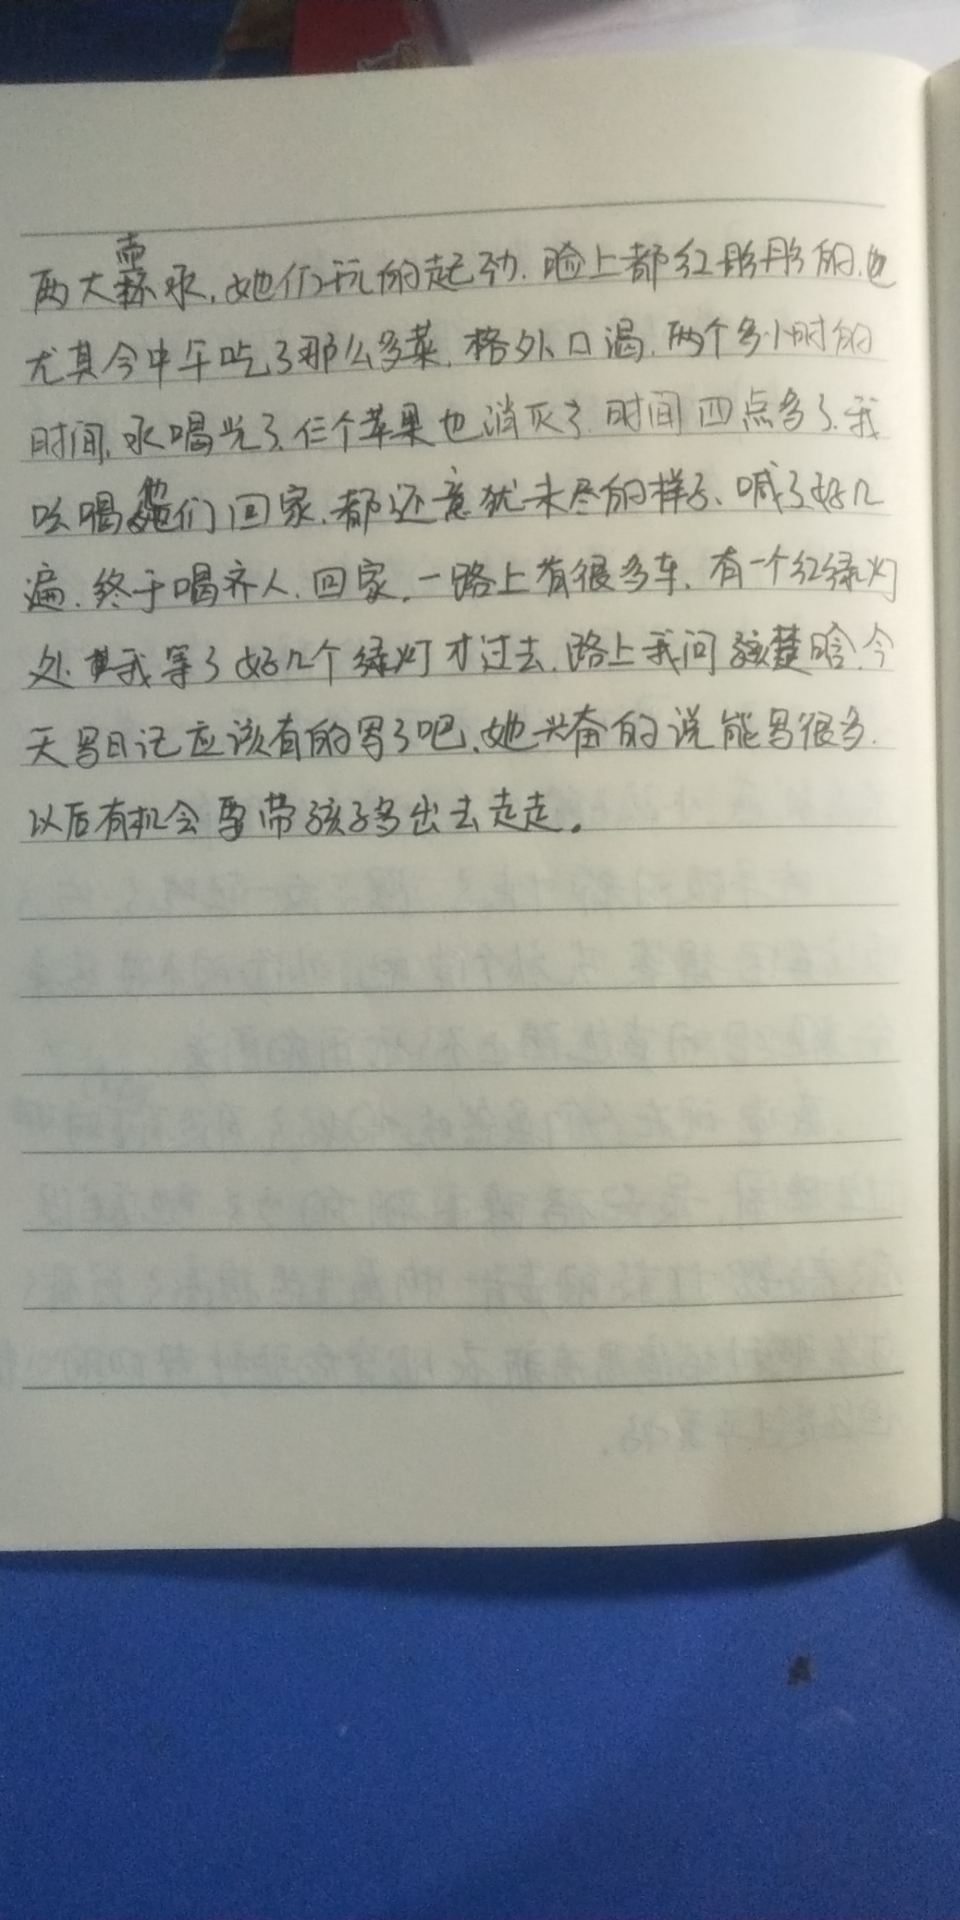 两大壶水，她们玩的起劲．脸上都红彤彤的．也
尤其今中午吃了那么多菜．格外口渴．两个多小时的
时间．水喝光了．仨个苹果也消灭了．时间四点多了．我
吆喝她们回家．都还意犹未尽的样子、喊了好几
遍．终于喝齐人．回家．一路上有很多车．有一个红绿灯
处．我等了好几个绿灯才过去．路上我问孩楚晗．今
天写日记应该有的写了吧．她兴奋的说能写很多．
以后有机会要带孩子多出去走走。